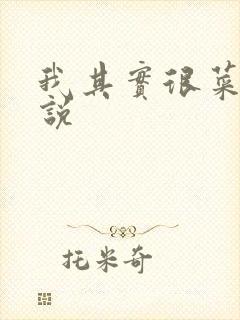 我其實很菜
說
托米奇